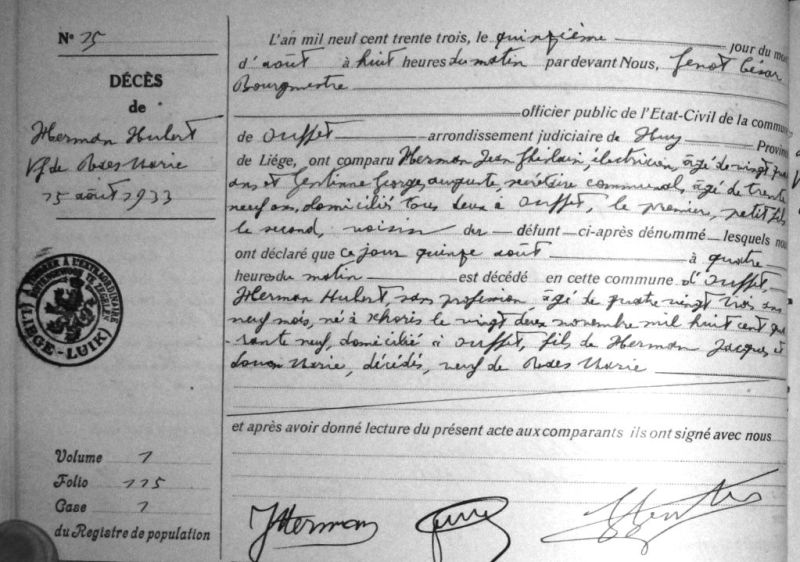 N° 25
DÉCÈS
de
Herman Hubert
Vf de Raes Marie
15 août 1933
À TIMBRER À L'EXTRAORDINAIRE
LIÈGE-LUIK
Volume 1
Folio 115
Case 1
du Registre de population
L'an mil neuf cent trente trois, le quinzième jour du mo
d'août à huit heures du matin par devant Nous, Genot César
Bourgmestre
officier public de l'Etat-Civil de la commun
de Ouffet arrondissement judiciaire de Huy Provin
de Liége, ont comparu Herman Jean Ghislain, électricien, âgé de vingt
ans et George, auguste, secrétaire communal, âgé de trente
neuf ans, domiciliés tous deux à Ouffet, le premier, petit fils
le second, voisin du défunt ci-après dénommé lesquels no
ont déclaré que ce jour quinze août à quatre
heures du matin est décédé en cette commune d'Ouffet
Herman Hubert, sans profession âgé de quatre vingt trois ans
neuf mois, né à Xhoris le vingt deux novembre mil huit cent qua
-rante neuf, domicilié à Ouffet, fils de Herman Jacques et
Marie, décédés, veuf de Raes Marie
et après avoir donné lecture du présent acte aux comparants ils ont signé avec nous
JHerman